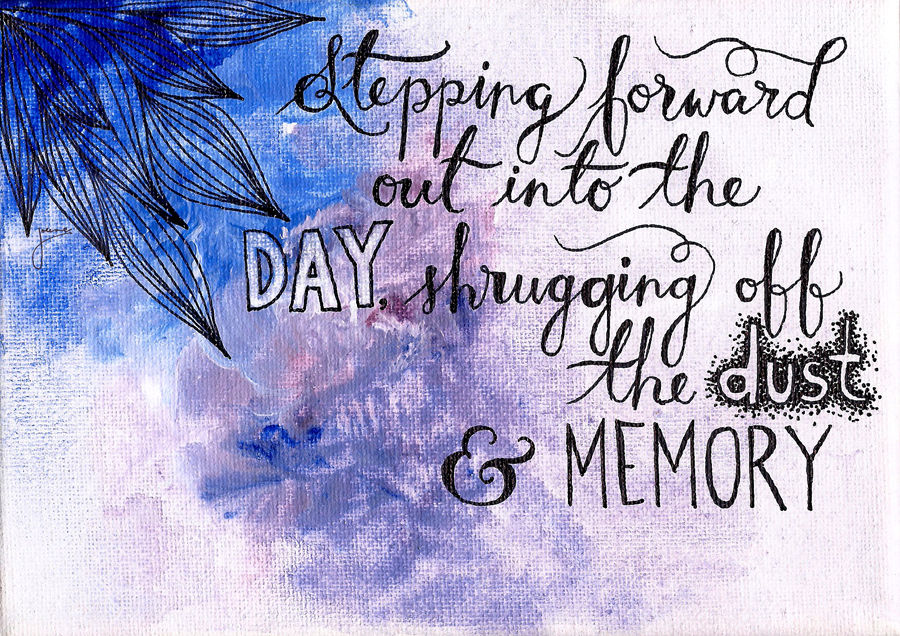 Stepping forward
out into the
DAY, shrugging off
the dust
& MEMORY